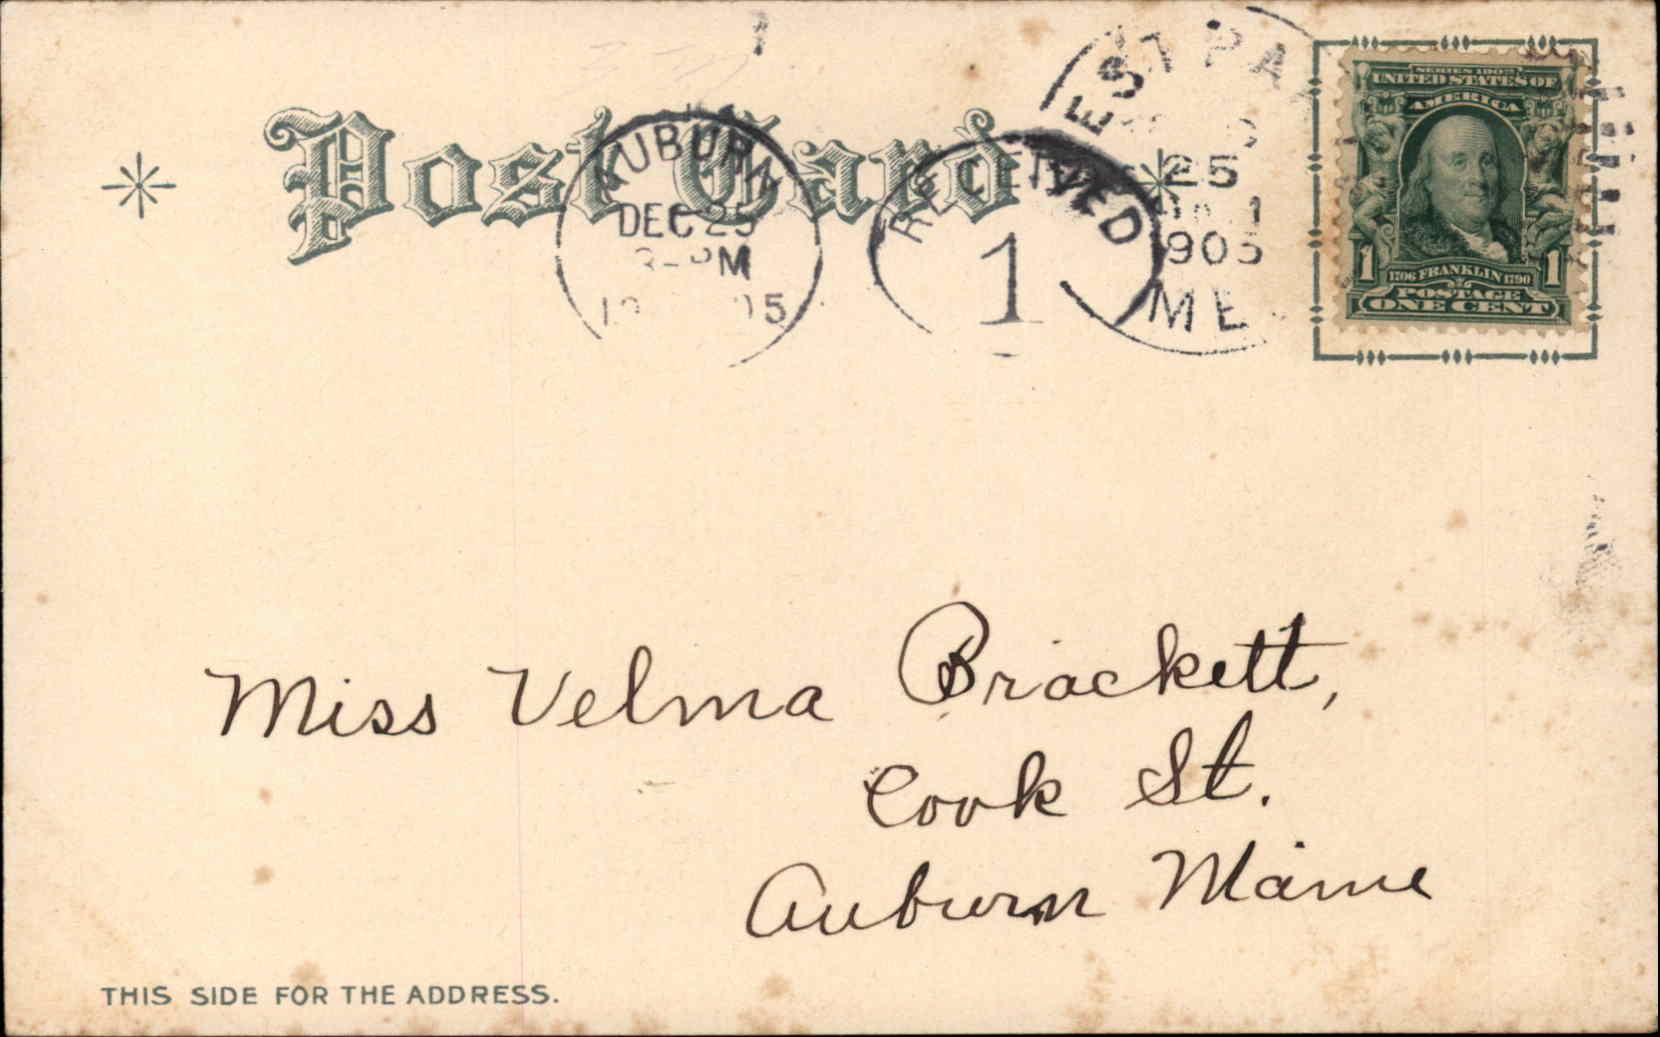 Post Card
AUBURN
DEC 25
3-PM
RECEIVED
1
EST PA
25
905
ME
SERIES 1902
UNITED STATES OF
AMERICA
1 1
1706 FRANKLIN 1790
POSTAGE
ONE CENT
Miss Velma Brackett,
Cook St.
Auburn Maine
THIS SIDE FOR THE ADDRESS.